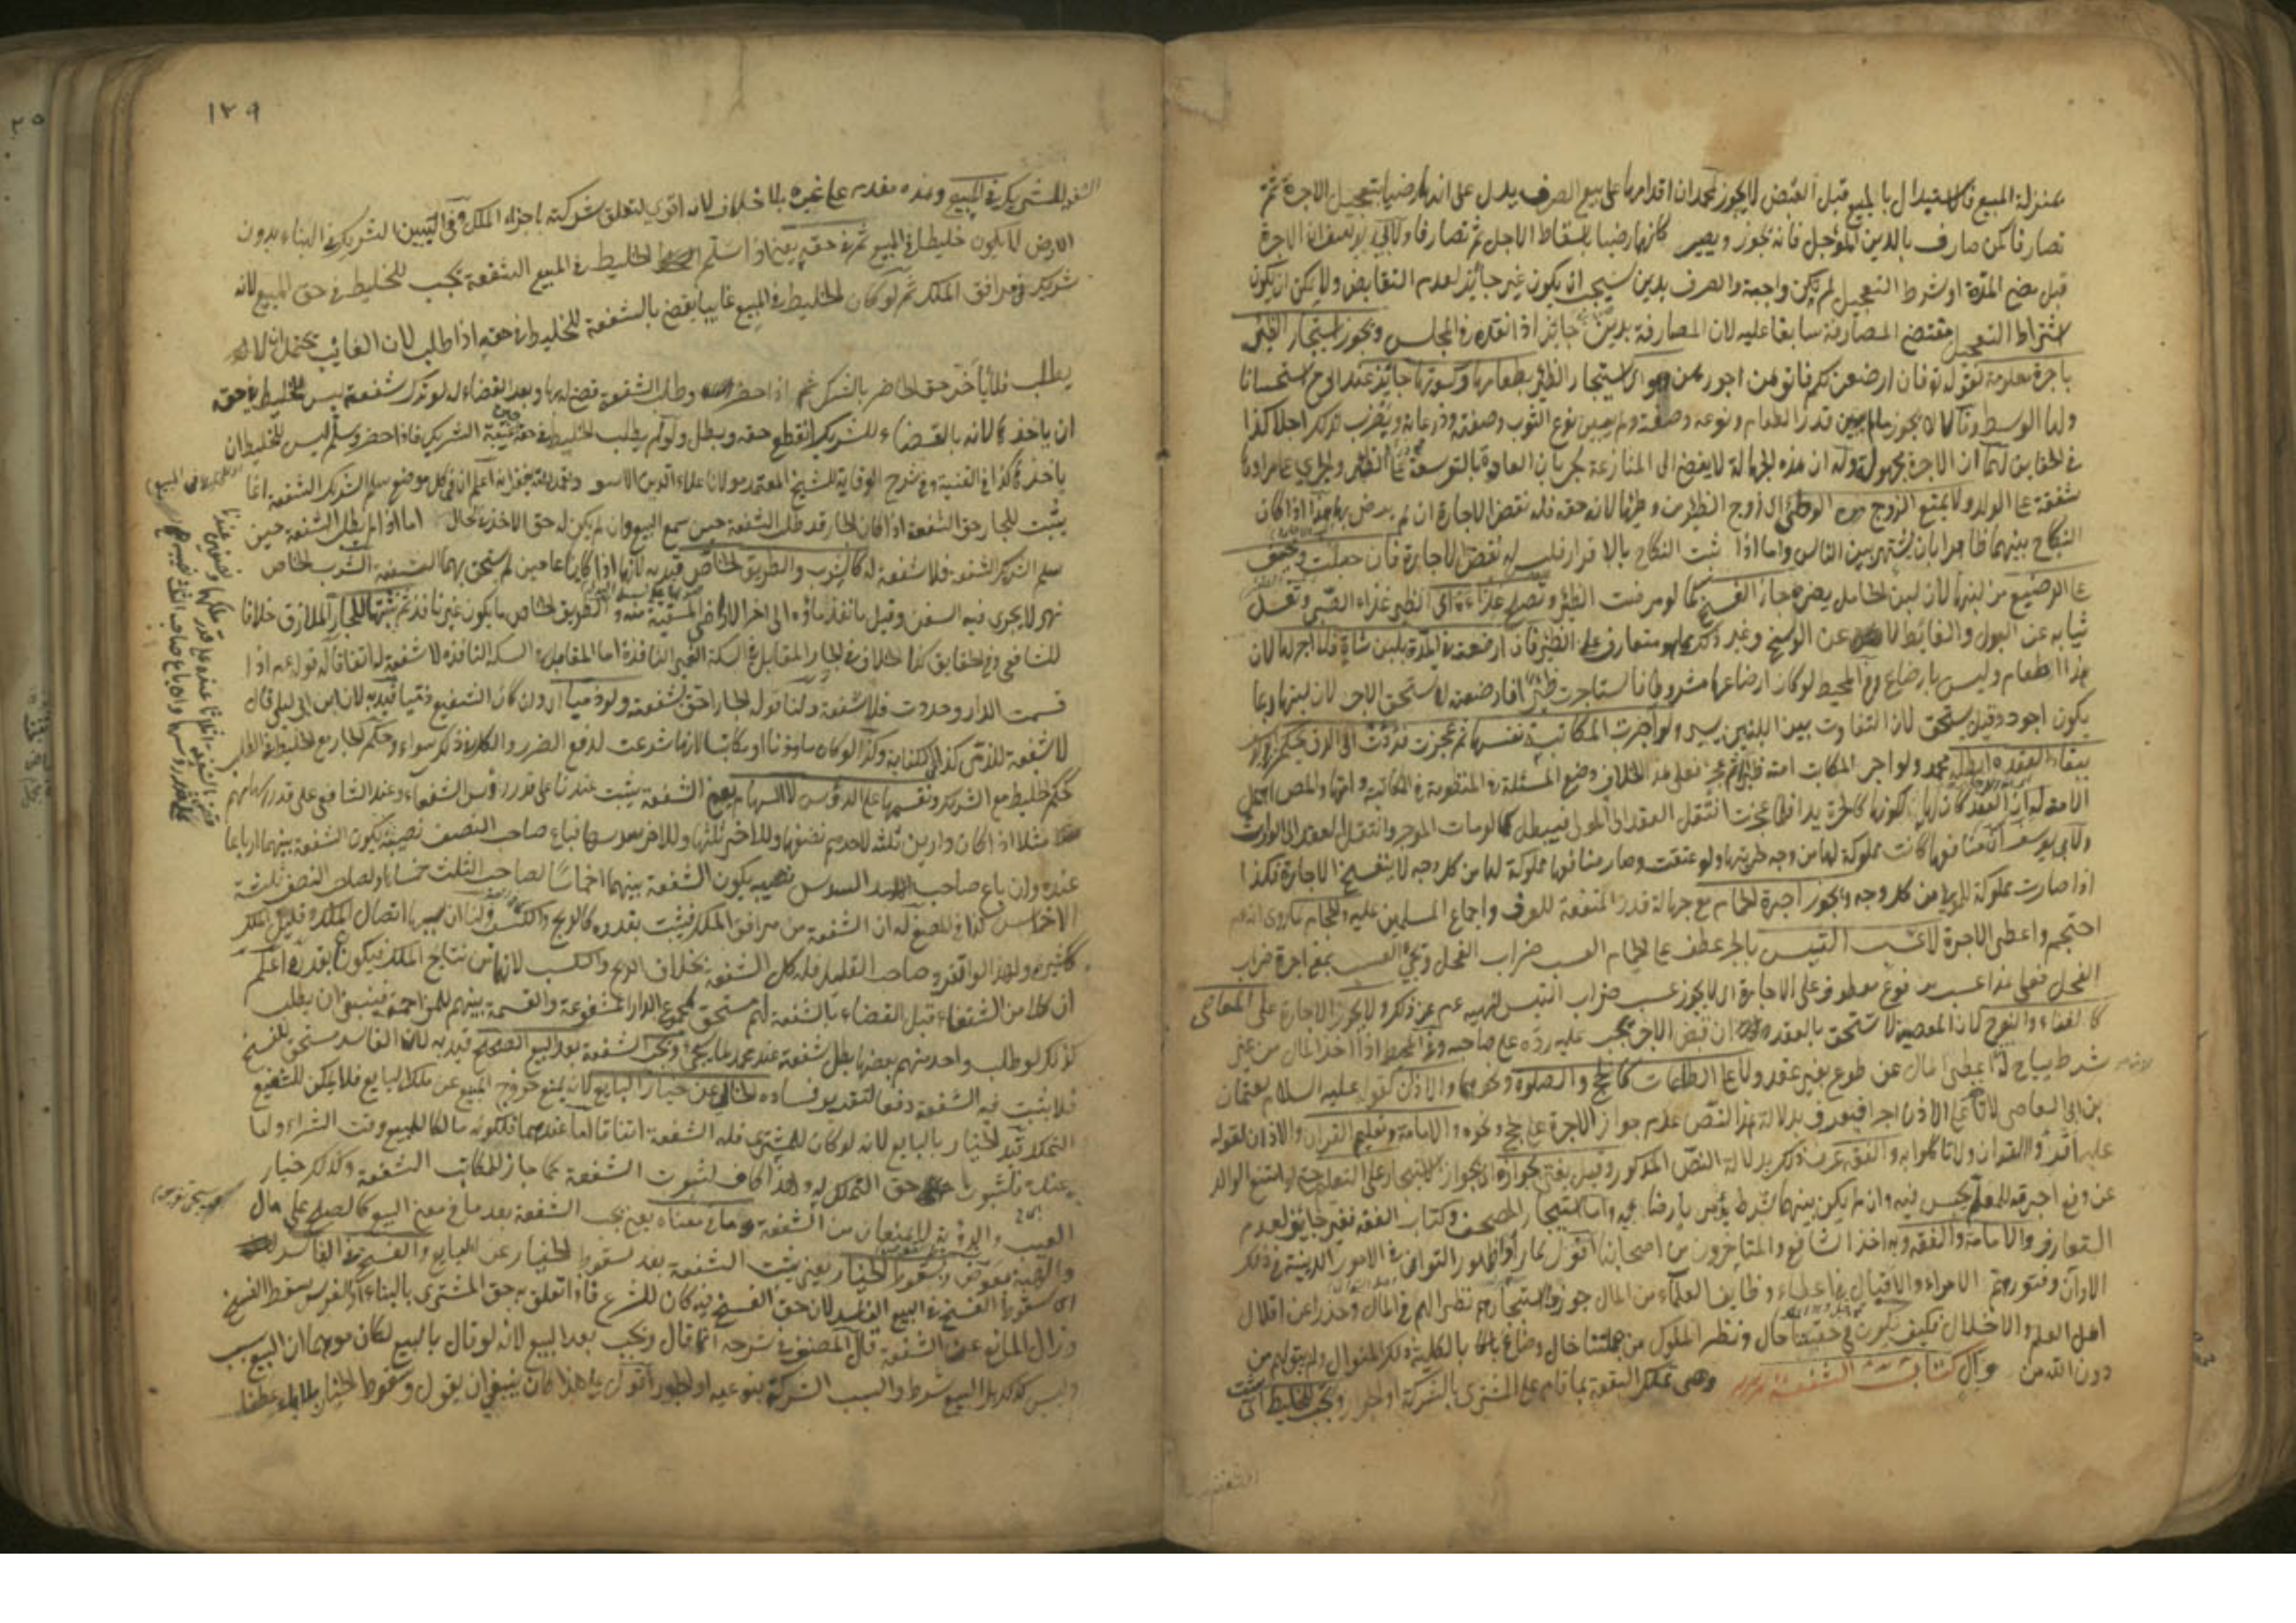 بمنزلة المبيع فالاستبدال بالمبيع قبل القبض لا يجوز لمحمد ان اقدامهما على بيع الصرف يدل على انهما رضيا بتعجيل الاجرة ثم
تصارفا كمن صارف بالدين المؤجل فانه يجوز ويصير كانهما رضيا باسقاط الاجل ثم تصارفا ولابي يوسف ان الاجرة
قبل مضي المدة او شرط التعجيل لم تكن واجبة والصرف بدين سيجب ان يكون غير جائز لعدم التقابض ولا يمكن ان يكون
اشتراط التعجيل مقتضى المصارفة سابقا عليه لان المصارفة بدين جائز اذا نقده في المجلس ويجوز استيجار الظئر
باجرة معلومة لقوله تع فان ارضعن لكم فاتوهن اجورهن استيجار الظئر بطعامها وكسوتها جائز عند ابي ح استحسانا
ولها الوسط وقالا لا يجوز ما لم يبين قدر الطعام ونوعه وصفته ولم يعين نوع الثوب وصفته وذرعانه ويضرب لذلك اجلا كذا
في الحقايق لهما ان الاجرة مجهولة وله ان هذه الجهالة لا يفضي الى المنازعة لجريان العادة بالتوسعة على الظئر
شفقة على الولد ولا يمنع الزوج الوطئ اي زوج الظئر من وطئها لانه حقه فله نقض الاجارة ان لم يرض بها هذا اذا كان
النكاح بينهما ظاهرا بان يشتهر بين الناس واما اذا ثبت النكاح بالاقرار فليس له نقض الاجارة فان حبلت وخيف
على الرضيع من لبنها لان لبن الحامل يضره جاز الفسخ كما لو مرضت الظئر وتصلح غذاءه اي الظئر غذاء الصبي وتغسل
ثيابه عن البول والغائط لا عن الوسخ وغير ذلك مما هو متعارف على الظئر فان ارضعته في المدة بلبن شاة فلا اجر لها لان
هذا اطعام وليس بارضاع وفي المحيط لو كان ارضاعها مشروطا فاستاجرت ظئرا فارضعته لا تستحق الاجر لان لبنها ربما
يكون اجود وقيل يستحق لان التفاوت بين اللبنين يسير ولو آجرت المكاتبة نفسها ثم عجزت فردت الى الرق يحكم ابو يوسف
ببقاء العقد وابطله محمد ولو اجر المكاتب امته
الامة له ان العقد كان لها لكونها كالحرة يدا فلما عجزت انتقل العقد الى المولى فيبطل كما لو مات الموجر وانتقل العقد الى الوارث
ولابي يوسف ان منافعها كانت مملوكة لها من وجه ولو عتقت وصار منافعها مملوكة لها من كل وجه لا ينفسخ الاجارة فكذا
اذا صارت مملوكة للمولى من كل وجه ويجوز اجرة الحمام مع جهالة قدر المنفعة للعرف واجماع المسلمين عليه والحجام لما روى انه عم
احتجم واعطى الاجرة لا عسب التيس بالجر عطف على الحمام العسب ضراب الفحل ويجئ العسب بمعنى اجرة ضراب
الفحل فعلى هذا عسب مرفوع معطوف على الاجارة اي لا يجوز عسب ضراب التيس لنهيه عم عن ذلك ولا يجوز الاجارة على المعاصي
كالغناء والنوح لان المعصية لا تستحق بالعقد وان قبض الاجر يجب عليه رده على صاحبه وفي المحيط اذا اخذ المال من غير
شرط يباح له اعطى المال عن طوع بغير عقد ولا على الطاعات كالحج والصلوة ونحوهما والاذان لقوله عليه السلام لعثمان
بن ابي العاص لا تاخذ على الاذان اجرا فيعرف بدلالة هذا النص عدم جواز الاجرة على الحج ونحوه والامامة وتعليم القران والاذان لقوله
عليه اقرؤا القران ولا تاكلوا به والفقه عرف ذلك بدلالة النص المذكور وقيل يفتى بجوازه اي بجواز الاستيجار على التعليم حتى لو امتنع الوالد
عن دفع اجرته للمعلم يحبس فيه وان لم يكن بينهما شرط يؤمر بارضائه واما استيجار المصحف وكتاب الفقه فغير جائز لعدم
التعارف والامامة والفقه وبه اخذ الشافعي والمتاخرون من اصحابنا اقول لما راوا ظهور التوانى في الامور الدينية في ذلك
الاوان وفتور همم الامراء والاقبال في اعطاء وظايف العلماء من المال جوزوا الاستيجار نظرا لهم في المال وحذرا عن اقلال
اهل العلم والاختلال فكيف يكون في حقيقتنا حال ونظر الملوك من جهتنا خال وضاع بالكلية ذلك المنوال ولم يبق لهم من
دون الله من وال كتاب الشفعة وهي تملك البقعة بما قام على المشتري بالشركة او الجوار وتجب للخليط اي تثبت
١٢٩
الشفعة للشريك في المبيع وهذه مقدم على غيره بلا خلاف لانه اقوى لتعلق شركته باجزاء الملك وفي التبيين الشريك في البناء بدون
الارض لا يكون خليطا في المبيع ثم في حقه يعني اذا سلم الخليط في المبيع الشفعة يجب للخليط في حق المبيع لانه
شريك في مرافق الملك ثم لو كان الخليط في المبيع غايبا يقضى بالشفعة للخليط في حقه اذا طلب لان الغائب يحتمل ان لا
يطلب فلا يأخر حق الحاضر بالشك ثم اذا حضر وطلب الشفعة قضى له بها وبعد القضاء له لو ترك شفعة ليس للخليط في حقه
ان ياخذها لانه بالقضاء للشريك انقطع حقه وبطل ولو لم يطلب الخليط في حقه حين غيبة الشريك فاذا حضر وسلم ليس للخليط ان
ياخذها كذا في القنية وفي شرح الوقاية للشيخ المعتمد مولانا علاء الدين الاسود اعلم ان في كل موضع سلم الشريك الشفعة انما
يثبت للجار حق الشفعة اذا كان الجار قد طلب الشفعة حين سمع البيع وان لم يكن له حق الاخذ في الحال اما اذا لم يطلب الشفعة حين
سلم الشريك الشفعة فلا شفعة له كالشرب والطريق الخاص قيد به لانهما اذا كانا عامين لم يستحق بهما الشفعة الشرب الخاص
نهر لا يجرى فيه السفن وقيل ما نفذ ماؤه الى اخر الاراضي المسقية منه والطريق الخاص ما يكون غير نافذ ثم نثبتها للجار الملازق خلافا
للشافعي وفي الحقايق كذا الخلاف في الجار المقابل في السكة الغير النافذة اما المقابل في السكة النافذة لا شفعة له اتفاقا له قوله عم اذا
قسمت الدار وحددت فلا شفعة ولنا قوله الجار احق بشفعته ولو ذميا اي ولو كان الشفيع ذميا قيد به لان ابن ابي ليلى قال
لا شفعة للذمي كذا في الكفاية وكذا لو كان ماذونا او مكاتبا لانها شرعت لدفع الضرر والكل في ذلك سواء وحكم الجار مع الخليط في الطلب
كحكم الخليط مع الشريك ونقسمها على الرؤس لا السهام يعني الشفعة يثبت عندنا على قدر رؤس الشفعاء وعند الشافعي على قدر سهامهم
مثلا اذا كان دار بين ثلثة لاحدهم نصفها وللاخر ثلثها وللاخر سدسها فباع صاحب النصف نصيبه يكون الشفعة بينهما ارباعا
عنده وان باع صاحب السدس نصيبه يكون الشفعة بينهما اخماسا لصاحب الثلث خمساها ولصاحب النصف ثلثة
الاخماس كذا في المصفى له ان الشفعة من مرافق الملك فيثبت بقدره كالربح والكسب ولنا ان سببها اتصال الملك وقليل الملك
ككثيره ولهذا لو انفرد صاحب القليل فله كل الشفعة بخلاف الربح والكسب لانهما من نتايج الملك فيكون بقدره اعلم
ان كلا من الشفعاء قبل القضاء بالشفعة لهم مستحق لمجموع الدار المشفوعة والقسمة بينهم للمزاحمة فينبغي ان يطلب
كل ذلك لو طلب واحد منهم بعضها بطل شفعة عند محمد على ما يجئ وتجب الشفعة بعد البيع الصحيح قيد به لان الفاسد مستحق للفسخ
فلا يثبت فيه الشفعة دفعا لتقدير فساده الخالي عن خيار البايع لانه يمنع خروج المبيع عن ملك البايع فلا يمكن للشفيع
التملك قيد الخيار بالبايع لانه لو كان للمشتري فله الشفعة اتفاقا اما عندهما فلكونه مالكا للمبيع وقت الشراء واما
عنده فلثبوت حق التملك له وهذا كاف لثبوت الشفعة كما جاز للمكاتب الشفعة وكذلك خيار
العيب والرؤية لا يمنعان من الشفعة وما في معناه يعني تجب الشفعة بعد ما في معنى البيع كالصلح على مال
والهبة بعوض وبسقوط الخيار يعني يثبت الشفعة بعد سقوط الخيار عن البايع والفسخ في الفاسد
اي سقوط الفسخ في البيع الفاسد لان حق الفسخ فيه كان للشرع فاذا تعلق به حق المشتري بالبناء او الغرس سقط الفسخ
وزال المانع عن الشفعة قال المصنف في شرحه انما قال وتجب بعد البيع لانه لو قال بالبيع لكان موهما ان البيع سبب
وليس كذلك بل البيع شرط والسبب الشركة بنوعيه او الجوار اقول على هذا كان ينبغي ان يقول وسقوط الخيار بلا باء عطفا